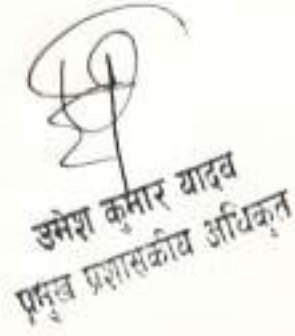 उमेश कुमार यादव
प्रमुख प्रशासकीय अधिकृत